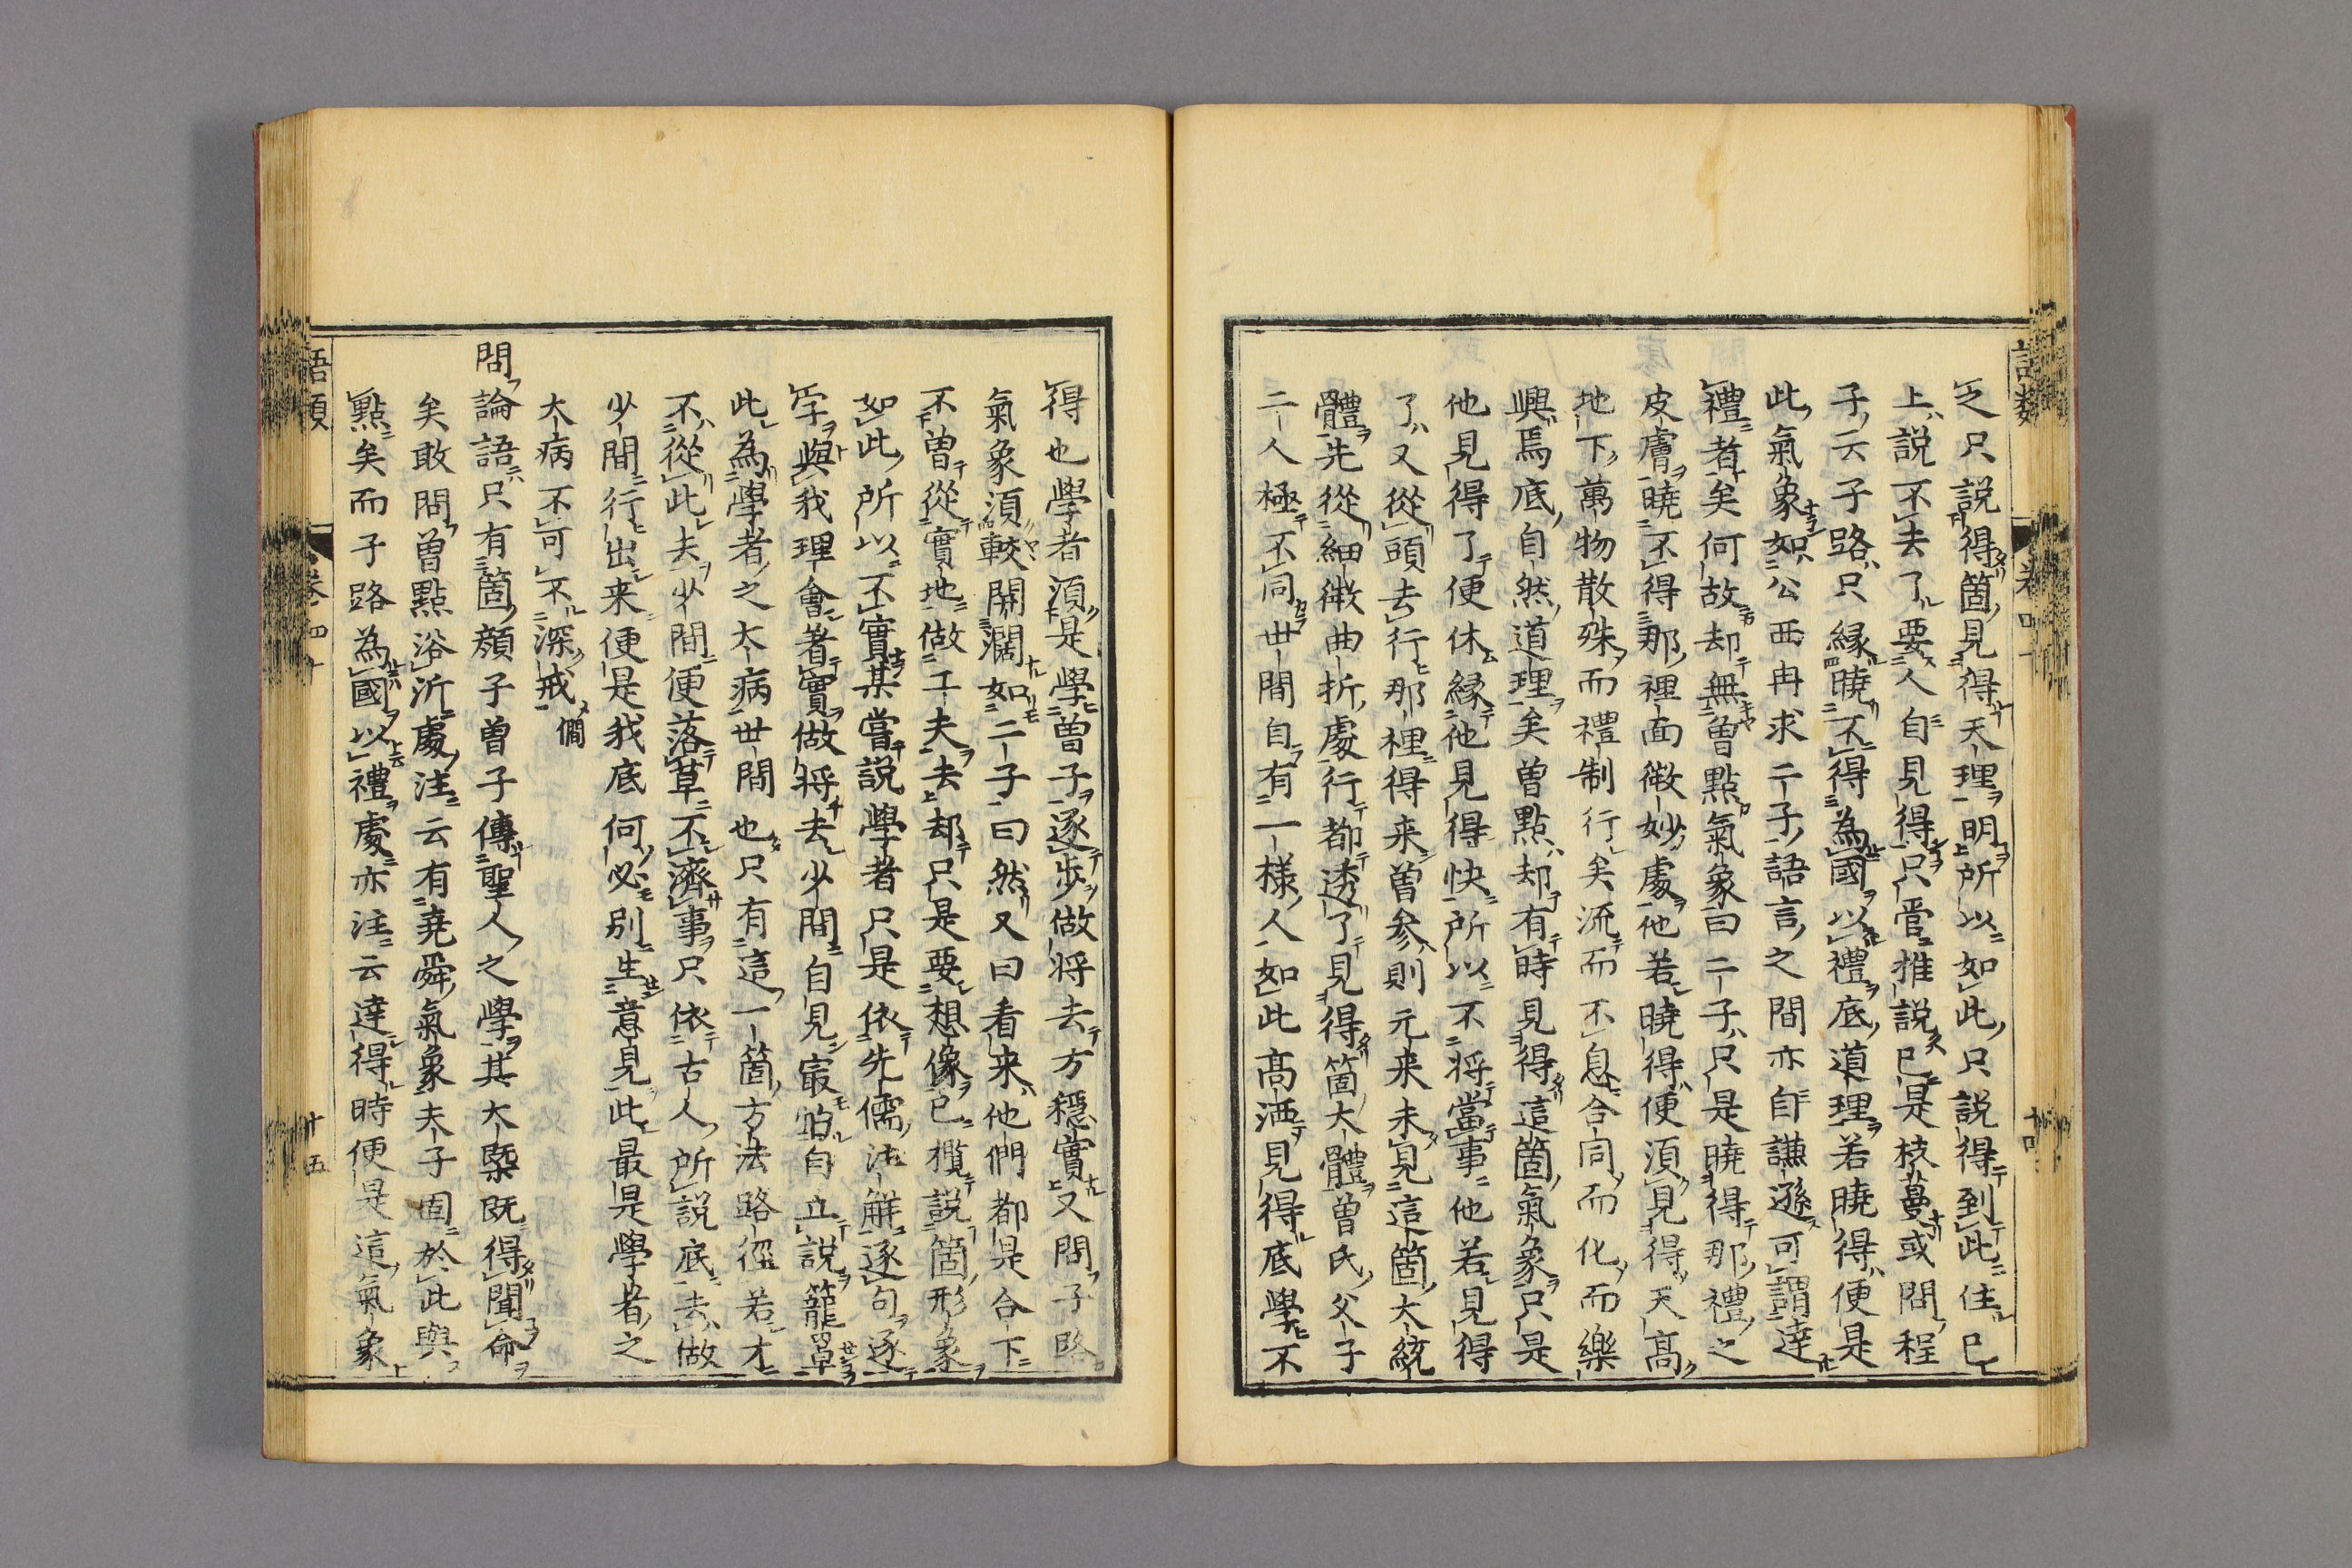 乏只說得箇見得天理明所以如此只說得到此住已
上說不去了要人自見得只管推說已是枝蔓或問程
子云子路只緣曉不得為國以禮底道理若曉得便是
此氣象如公西冉求二子語言之間亦自謙遜可謂達
禮者矣何故却無曾點氣象曰二子只是曉得那禮之
皮膚曉不得那裡面微妙處他若曉得便須見得天高
地下萬物散殊而禮制行矣流而不息合同而化而樂
興焉底自然道理矣曾點却有時見得這箇氣象只是
他見得了便休緣他見得快所以不將當事他若見得
了又從頭去行那裡得来曾參則元来未見這箇大統
體先從細微曲折處行都透了見得箇大體曾氏父子
二人極不同世間自有一樣人如此高洒見得底學不
得也學者須是學曾子逐步做將去方穩實又問子路
氣象須較開濶如二子曰然又曰看来他們都是合下
不曾從實地做工夫去却只是要想像已攬說箇形象
如此所以不實某嘗說學者只是依先儒注解逐句逐
字與我理會著實做將去少間自見最怕自立說籠罩
此為學者之大病世間也只有這一箇方法路徑若才
不從此去少間便落草不濟事只依古人所說底去做
少間行出来便是我底何必別生意見此最是學者之
大病不可不深戒 僩
問論語只有箇顏子曾子傳聖人之學其大槩既得聞命
矣敢問曾點浴沂處注云有堯舜氣象夫子固於此與
點矣而子路為國以禮處亦注云達得時便是這氣象
語類 卷四十 十五